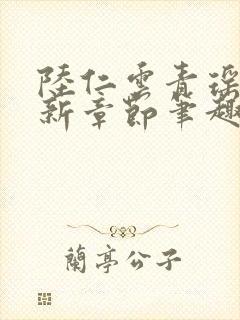 陸仁雲青瑤
新章節筆趣
蘭亭公子